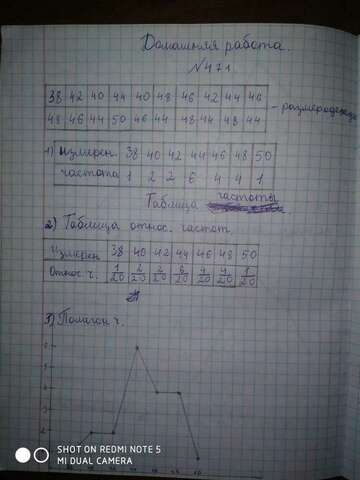 Домашняя работа.
№471.
38 42 40 44 40 48 46 42 44 46
48 46 44 50 46 44 48 44 48 44
- размер одежды
1) измерен. 38 40 42 44 46 48 50
частота 1 2 2 6 4 4 1
Таблица частоты
2) Таблица относ. частот.
Измерен 38 40 42 44 46 48 50
Относ. ч. 1/20 2/20 2/20 6/20 4/20 4/20 1/20
3) Полигон ч.
6
5
4
3
2
SHOT ON REDMI NOTE 5
MI DUAL CAMERA